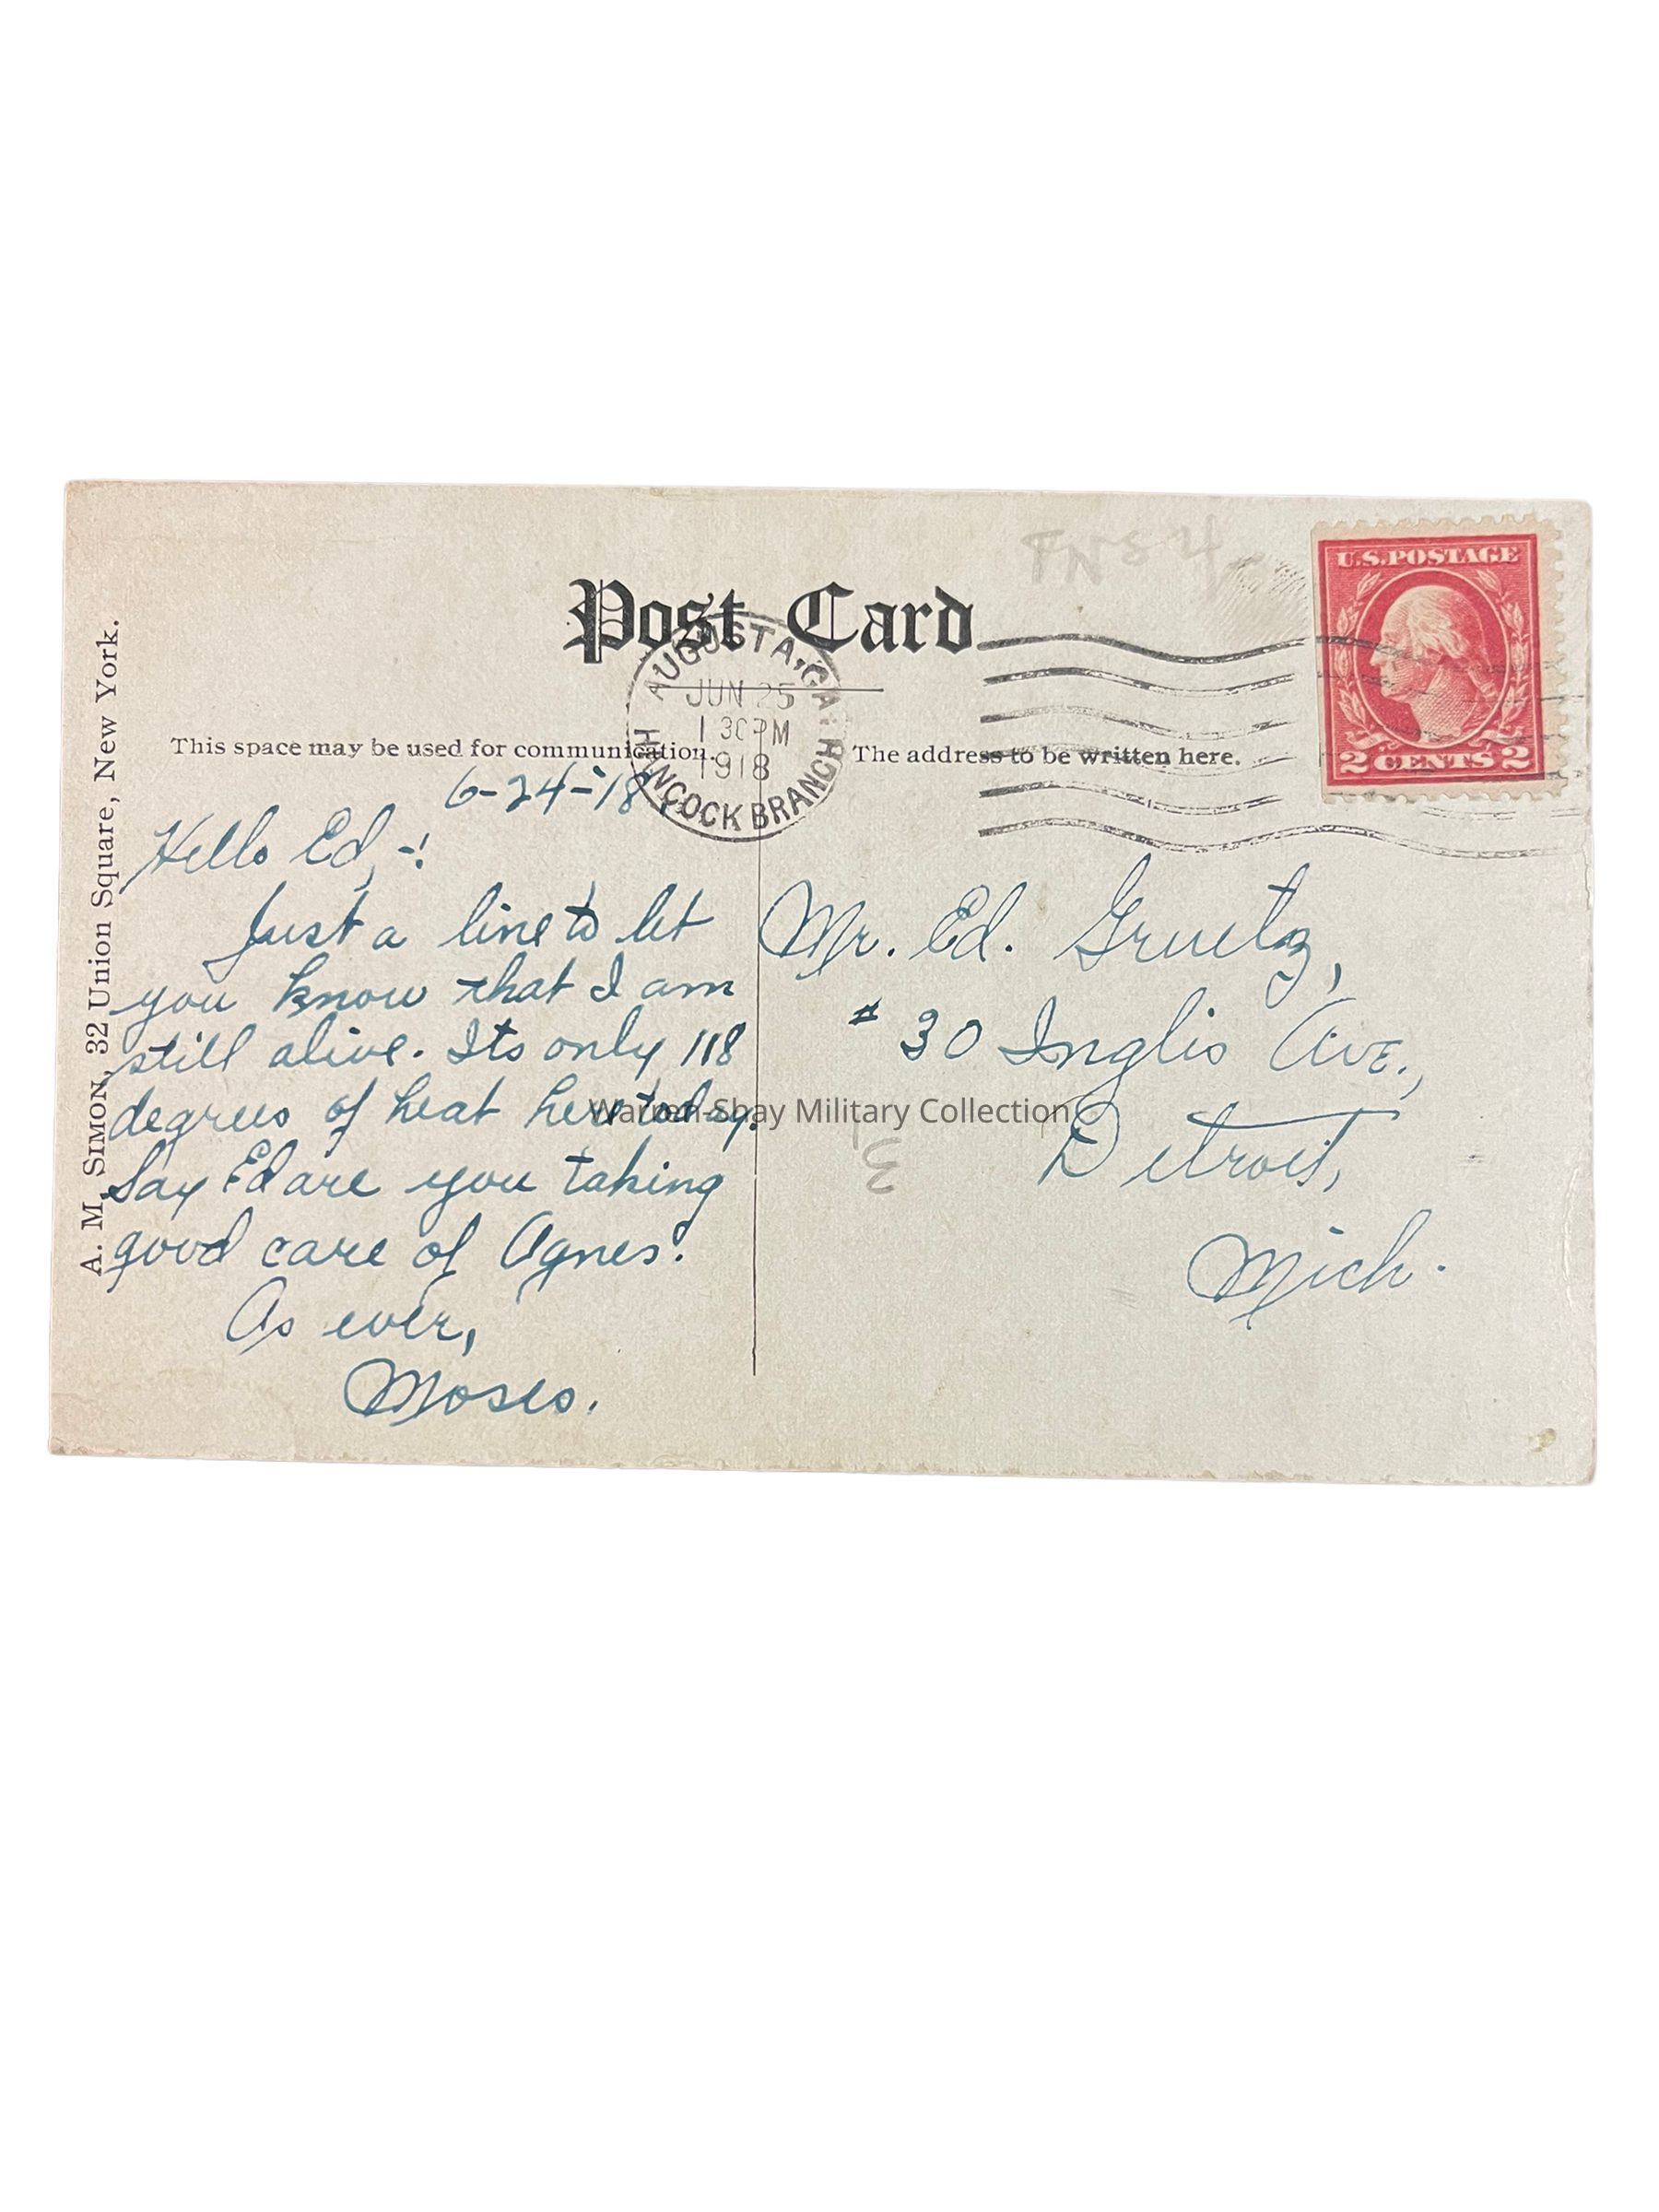 FNS 4
Post Card
U.S. POSTAGE
2 CENTS 2
AUGUSTA, GA.
JUN 25
1 30 PM
1918
HANCOCK BRANCH
This space may be used for communication.
The address to be written here.
6-24-'18.
Hello Ed,-!
Just a line to let
you know that I am
still alive. Its only 118
degrees of heat here today.
Say Ed are you taking
good care of Agnes?
As ever,
Moses.
Mr. Ed. Gruetz,
# 30 Inglis Ave.,
Detroit,
Mich.
A. M. SIMON, 32 Union Square, New York.
Warren-Shay Military Collection